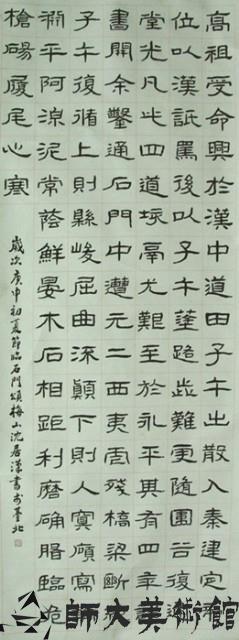 高祖受命興於漢中道由子午出散入秦建定帝
位以漢詆焉後以子午塗路歰難更隨圍谷復通
堂光凡此四道垓鬲尤艱至於永平其有四年詔
書開余鑿通石門中遭元二西夷虐殘橋梁斷絕
子午復循上則縣峻屈曲流顛下則入冥廎寫輸
淵平阿淖泥常蔭鮮晏木石相距利磨确磐臨危
槍碭履尾心寒
歲次庚申初夏節臨石門頌梅山沈居漢書於臺北
師大美術館